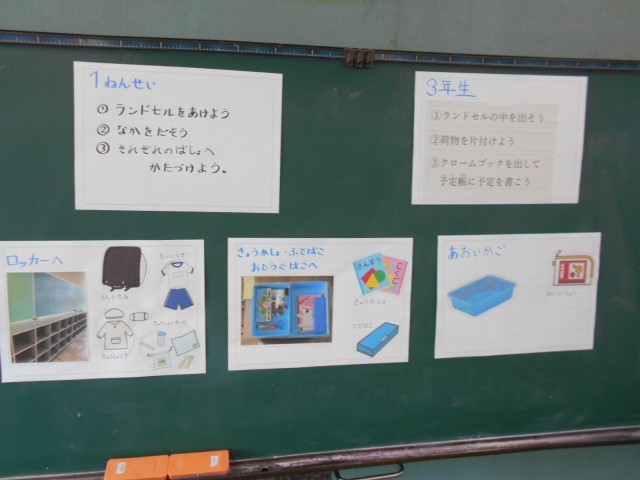 1ねんせい
① ランドセルをあけよう
② なかをだそう
③ それぞれのばしょへ
かたづけよう。
3年生
①ランドセルの中を出そう
②荷物を片付けよう
③クロームブックを出して
予定帳に予定を書こう
ロッカーへ
きょうかしょ・ふでばこ
おどうぐばこへ
さんすう
きょうかしょ
ふでばこ
あおいかご